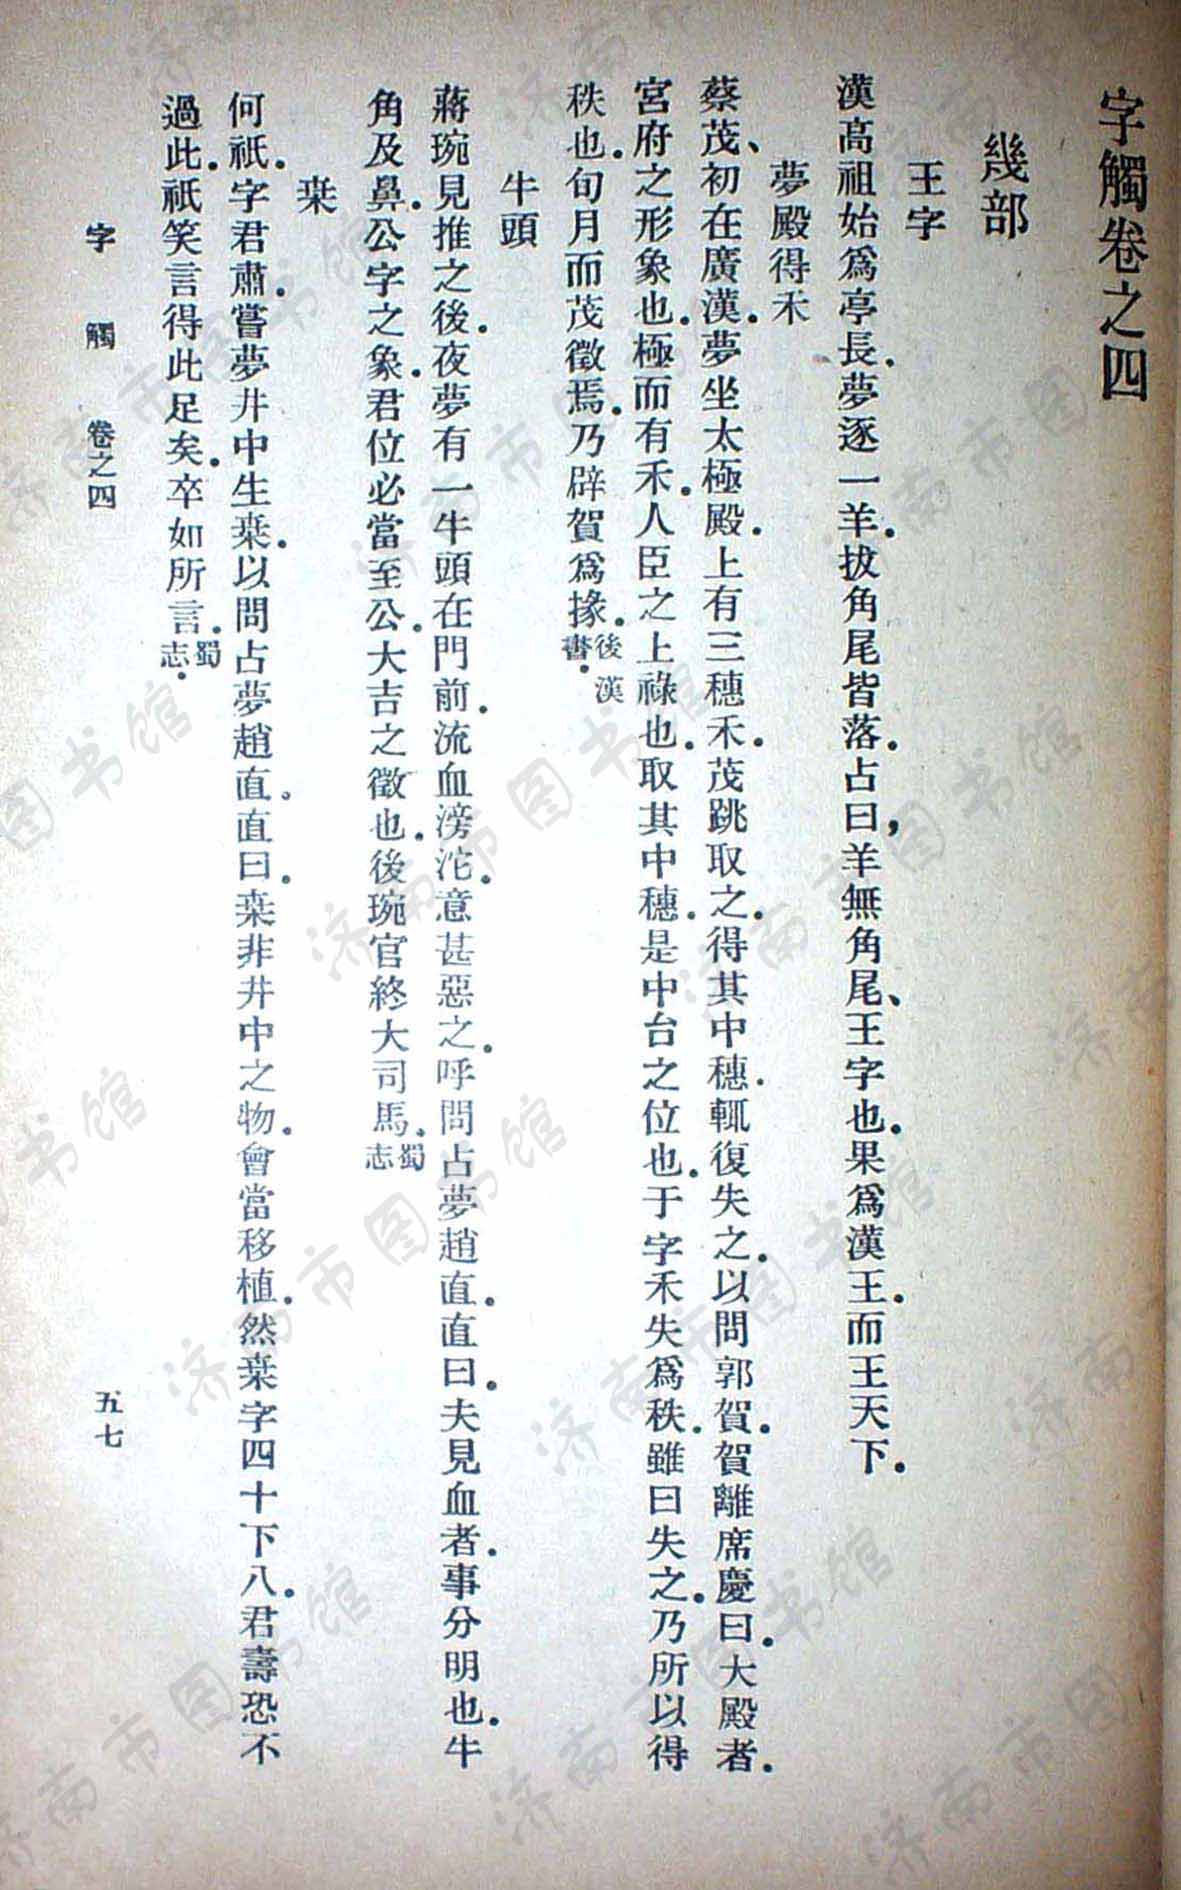 字觸卷之四
幾部
王字
漢高祖始爲亭長.夢逐一羊.拔角尾皆落.占曰,羊無角尾、王字也.果爲漢王.而王天下.
夢殿得禾
蔡茂、初在廣漢.夢坐太極殿.上有三穗禾.茂跳取之.得其中穗.輒復失之.以問郭賀.賀離席慶曰.大殿者.
宮府之形象也.極而有禾.人臣之上祿也.取其中穗.是中台之位也.于字禾失爲秩.雖曰失之.乃所以得
秩也.旬月而茂徵焉.乃辟賀爲掾.後漢書.
牛頭
蔣琬見推之後.夜夢有一牛頭在門前.流血滂沱.意甚惡之.呼問占夢趙直.直曰.夫見血者.事分明也.牛
角及鼻.公字之象.君位必當至公.大吉之徵也.後琬官終大司馬.蜀志
桒
何祇.字君肅.嘗夢井中生桒.以問占夢趙直。直曰.桒非井中之物.會當移植.然桒字四十下八.君壽恐不
過此.祇笑言得此足矣.卒如所言.蜀志.
字觸 卷之四 五七
济南市图书馆